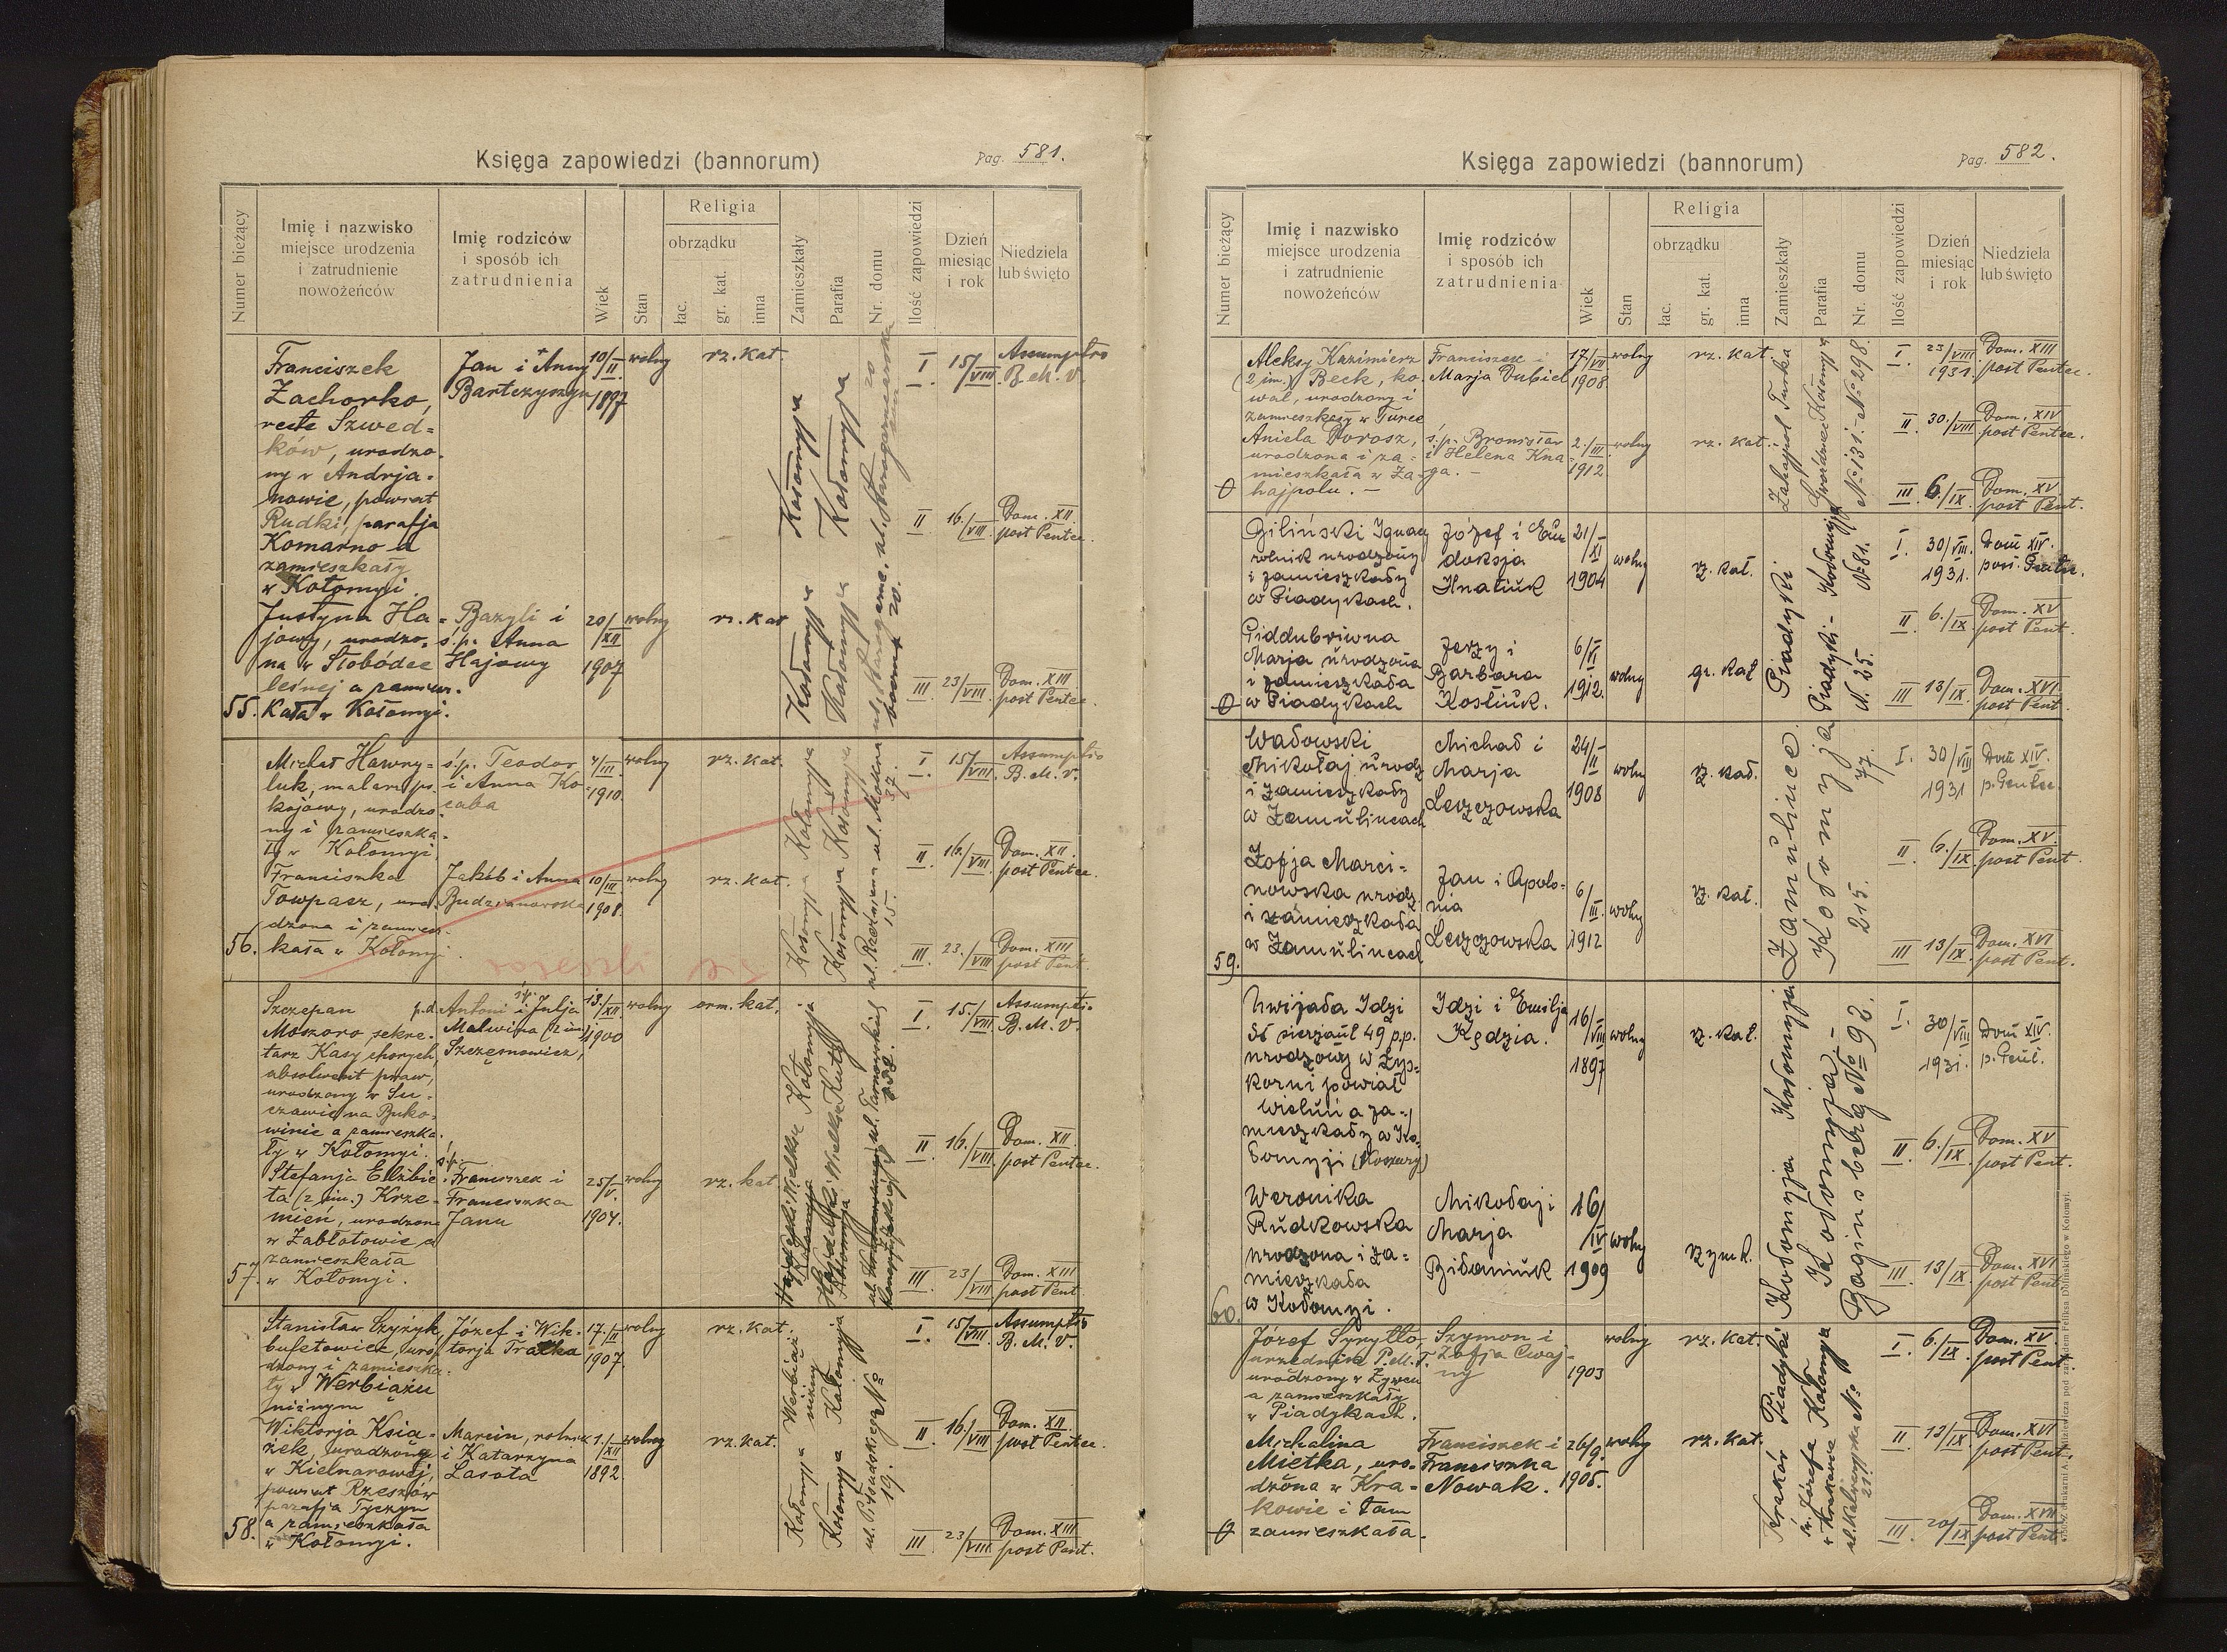 Księga zapowiedzi (bannorum)
Pag. 581.
Numer bieżący
Imię i nazwisko
miejsce urodzenia
i zatrudnienie
nowożeńców
Imię rodziców
i sposób ich
zatrudnienia
Wiek
Stan
Religia
obrządku
łac.
gr. kat.
inna
Zamieszkały
Parafia
Nr. domu
Ilość zapowiedzi
Dzień
miesiąc
i rok
Niedziela
lub święto
55.
Franciszek
Zachorko,
recte Szwed=
ków, urodzo-
ny w Andrja=
nowie, powiat
Rudki, parafja
Komarno a
zamieszkały
w Kołomyi.
Jan i Anny
Bartczyszyn
10/II
1897
wolny
rz. kat
Kołomyja
Kołomyja
I. 15/VIII. Assumptio
B. M. V.
II 16./VIII. Dom. XII
post Pentec.
Justyna Ha=
jowy, urodzo=
na w Słobódce
leśnej a zamiesz.
kała w Kołomyi.
Bazyli i
ś.p. Anna
Hajowy
20/XII
1907
wolny
rz. kat
Kołomyja
Kołomyja
III. 23/VIII. Dom. XIII
post Pentec.
56.
Michał Hawry=
luk, malarz po-
kojowy, urodzo-
ny i zamieszka-
ły w Kołomyi,
ś.p. Teodor
i Anna Ko
caba
4/III.
1910.
wolny
rz. kat.
Kołomyja
Kołomyja
ul. Mokra
37.
I. 15/VIII. Assumptio
B. M. V.
II. 16./VIII. Dom. XII.
post Pentec.
Franciszka
Towpasz, uro-
dzona i zamiesz-
kała w Kołomyi.
Jakób i Anna
Budzianowska
10/III
1908.
wolny
rz. kat.
Kołomyja
Kołomyja
15.
III. 23./VIII Dom. XIII
post Pent.
rozeszli się
57.
Szczepan
Moszoro sekre-
tarz Kasy chorych,
absolwent praw,
urodzony w Su-
czawie na Buko-
winie a zamieszka-
ły w Kołomyi.
ś.p.
Antoni i Julja
Malwina (2 im.)
Szczęsnowicz,
13./XII
1900
wolny
orm. kat.
Kołomyja
Kuty
ul. Tarnowskiej
I. 15./VIII. Assumptio
B. M. V.
II. 16./VIII. Dom. XII.
post Pentec.
Stefanja Elżbie-
ta (2 im.) Krze-
mień, urodzona
w Zabłotowie a
zamieszkała
w Kołomyi.
ś.p.
Franciszek i
Franciszka
Janu
25/V.
1904.
wolny
rz. kat
III. 23/VIII Dom. XIII
post Pent.
58.
Stanisław Szyżyk,
bufetowiec, uro-
dzony i zamieszka-
ły w Werbiążu
niżnym
Józef i Wik-
torja Tralka
17./II
1907
wolny
rz. kat.
Werbiąż
niżny
Kołomyja
No
I. 15/VIII. Assumptio
B. M. V.
II. 16/VIII Dom. XII.
post Pentec.
Wiktorja Ksią=
żek, urodzona
w Kielnarowej,
powiat Rzeszów
parafja Tyczyn
a zamieszkała
w Kołomyi.
Marcin, rolnik
i Katarzyna
Lasota
1./XII
1892.
wolny
rz. kat.
Kołomyja
Kołomyja
ul. Piłsudskiego
19.
III. 23/VIII. Dom. XIII
post Pent.
Księga zapowiedzi (bannorum)
Pag. 582.
Numer bieżący
Imię i nazwisko
miejsce urodzenia
i zatrudnienie
nowożeńców
Imię rodziców
i sposób ich
zatrudnienia
Wiek
Stan
Religia
obrządku
łac.
gr. kat.
inna
Zamieszkały
Parafia
Nr. domu
Ilość zapowiedzi
Dzień
miesiąc
i rok
Niedziela
lub święto
0
Aleksy Kazimierz
(2 im.) Beck, ko-
wal, urodzony i
zamieszkały w Turce
Franciszek i
Marja Dubiel
17/VII
1908
wolny
rz. kat
Turka
Kołomyja
No 298.
I. 23/VIII 1931. Dom. XIII
post Pentec.
II. 30./VIII Dom. XIV
post Pentec.
Aniela Dorosz,
urodzona i za-
mieszkała w Za-
hajpolu. -
ś.p. Bronisław
i Helena Kna-
ga. -
2./III.
1912
wolny
rz. kat.
Zahajpol
Gwoździec
No 131.
III. 6./IX. Dom. XV
post Pent.
0
Biliński Ignacy
rolnik urodzony
i zamieszkały
w Piadykach.
Józef i Eu-
doksja
Hnatiuk
21/XI
1904
wolny
rz. kat.
Piadyki
Kołomyja
No 81.
I. 30/VIII. 1931. Dom XIV.
post Pentec.
II 6./IX Dom. XV
post Pent.
Piddubriwna
Marja urodzona
i zamieszkała
w Piadykach
Jerzy i
Barbara
Kostiuk.
6/VI
1912.
wolny
gr. kat
Piadyki
N. 25.
III 13/IX. Dom. XVI
post Pent.
59.
Wadowski
Mikołaj urodz.
i zamieszkały
w Zamulincach
Michał i
Marja
Leszczowska
24/II
1908
wolny
rz. kat.
Zamulince.
Kołomyja
77.
I. 30/VIII 1931 Dom XIV.
p. Pentec.
II. 6./IX Dom. XV.
post Pent.
Zofja Marci=
nowska urodz.
i zamieszkała
w Zamulincach
Jan i Apolo-
nia
Leszczowska
6/III.
1912
wolny
rz. kat.
215.
III 13/IX Dom. XVI
post Pent.
60.
Kwijada Idzi
st sierżant 49 p.p.
urodzony w Łys-
korni powiat
Wieluń a za-
mieszkały w Ko-
łomyji (Koszary)
Idzi i Emilja
Kędzia.
16/VIII
1897
wolny
rz. kat.
Kołomyja
I. 30/VIII 1931. Dom XIV.
p. Pent.
II. 6./IX. Dom. XV
post Pent.
Weronika
Rudkowska
urodzona i za=
mieszkała
w Kołomyi.
Mikołaj i
Marja
Biłaniuk
16/IV
1909
wolny
rzym k.
Kołomyja
Kołomyja -
Baginsberg No 92.
III. 13/IX Dom. XVI
post Pent.
0
Józef Syrytło
urzędnik P.M.T.
urodzony w Żywcu
a zamieszkały
w Piadykach.
Szymon i
Zofja Cwaj-
ny
1903
wolny
rz. kat.
Piadyki
Kołomyja
No
I. 6./IX. Dom. XV
post Pent.
II. 13/IX. Dom. XVI
post Pent.
Michalina
Mietka, uro-
dzona w Kra-
kowie i tam
zamieszkała.
Franciszek i
Franciszka
Nowak.
26/9.
1905.
wolny
rz. kat.
Kraków
św. Józefa
w Krakowie
ul. Kalwaryjska
III. 20/IX Dom. XVII
post Pent.